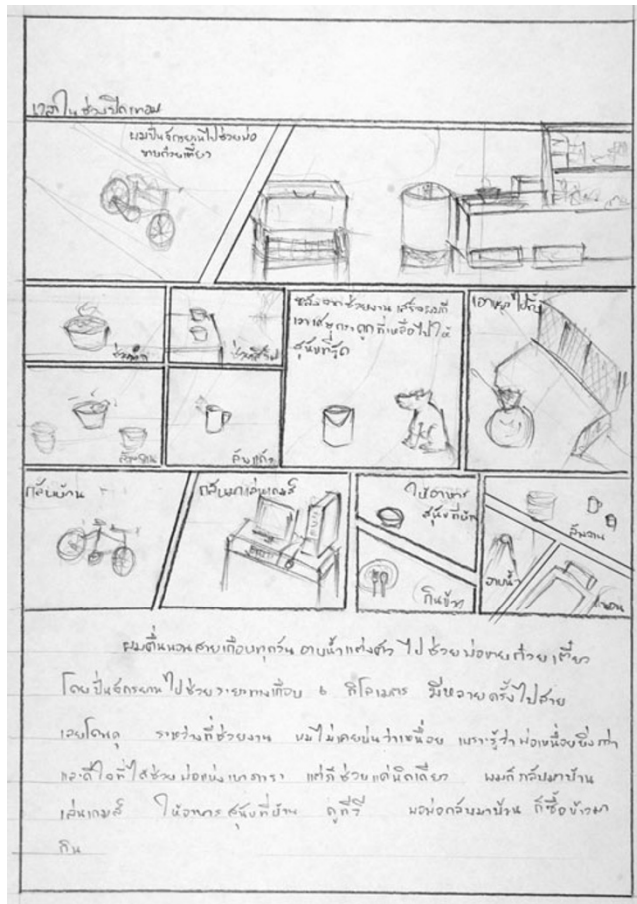 เวลาในช่วงปิดเทอม
ผมปั่นจักรยานไปช่วยพ่อ
ขายก๋วยเตี๋ยว
หลังจากช่วยงานเสร็จผมก็
เอาเศษกระดูกที่เหลือไปให้
สุนัขที่วัด
ล้างจาน
ล้างแก้ว
กลับบ้าน
กลับมาเล่นเกมส์
ให้อาหาร
สุนัขที่บ้าน
กินข้าว
ล้างจาน
อาบน้ำ
นอน
ผมตื่นนอนสายเกือบทุกวัน อาบน้ำแต่งตัว ไปช่วยพ่อขายก๋วยเตี๋ยว
โดยปั่นจักรยานไปช่วยระยะทางเกือบ ๖ กิโลเมตร มีหลายครั้งไปสาย
เลยโดนดุ ระหว่างที่ช่วยงาน ผมไม่เคยบ่นว่าเหนื่อย เพราะรู้ว่าพ่อเหนื่อยยิ่งกว่า
และดีใจที่ได้ช่วยพ่อแบ่งเบาภาระ แต่ก็ช่วยแค่นิดเดียว ผมก็กลับมาบ้าน
เล่นเกมส์ ให้อาหารสุนัขที่บ้าน ดูทีวี พอพ่อกลับมาบ้าน ก็ซื้อข้าวมา
กิน